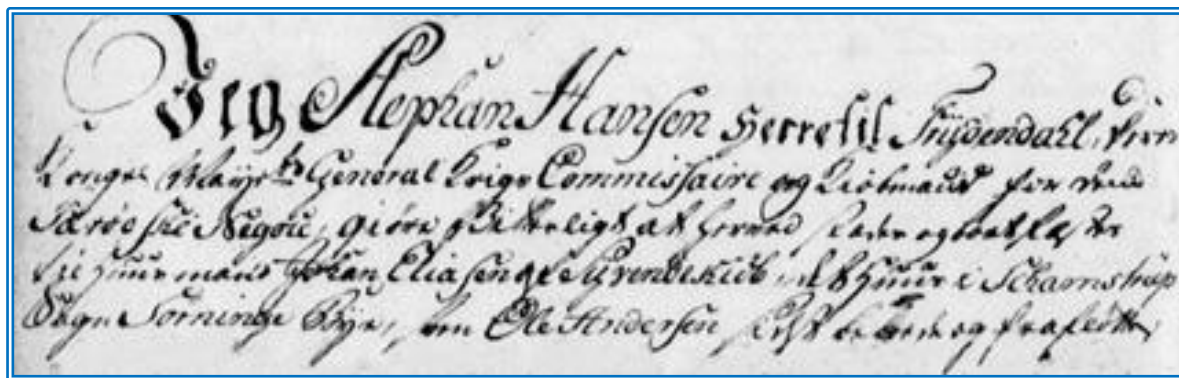 Jeg Stephan Hansen Herre til Frÿdendahl, Hans
Konge Maÿts General Krigs Commissaire og Kiøbmand for dend
Færøeske Negotie, giøre vitterligt at hermed steder og bortfæster
til Huusmand Johan Eliasen et Huus i Skamstrup
Sogn Sørninge Bÿe, som Ole Andersen sidst beboede og frafløtte,